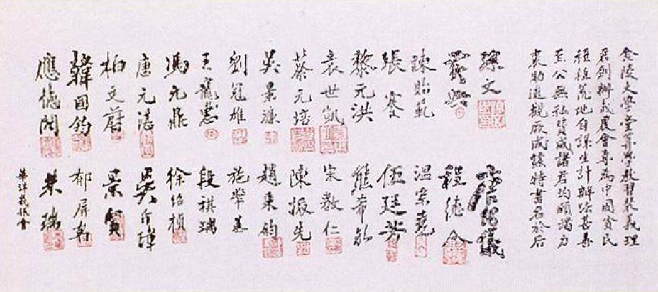 金陵大學堂算學教習裴義理
君創辦義農會專為中國貧民
種植荒地自謀生計辦法善
至公無私贊成諸君均願竭力
襄助觀厥成特書名於后
孫文 唐紹儀
黃興 程德全
陳貽範 溫宗堯
張謇 伍廷芳
黎元洪 熊希齡
袁世凱 宋教仁
蔡元培 陳振先
吳景濂 趙秉鈞
劉冠雄 施肇基
王寵惠 段祺瑞
馮元鼎 徐紹楨
唐元湛 吳介璋
柏文蔚 景賢
韓國鈞 郁屏翰
應德閎 朱瑞
華洋義賑會